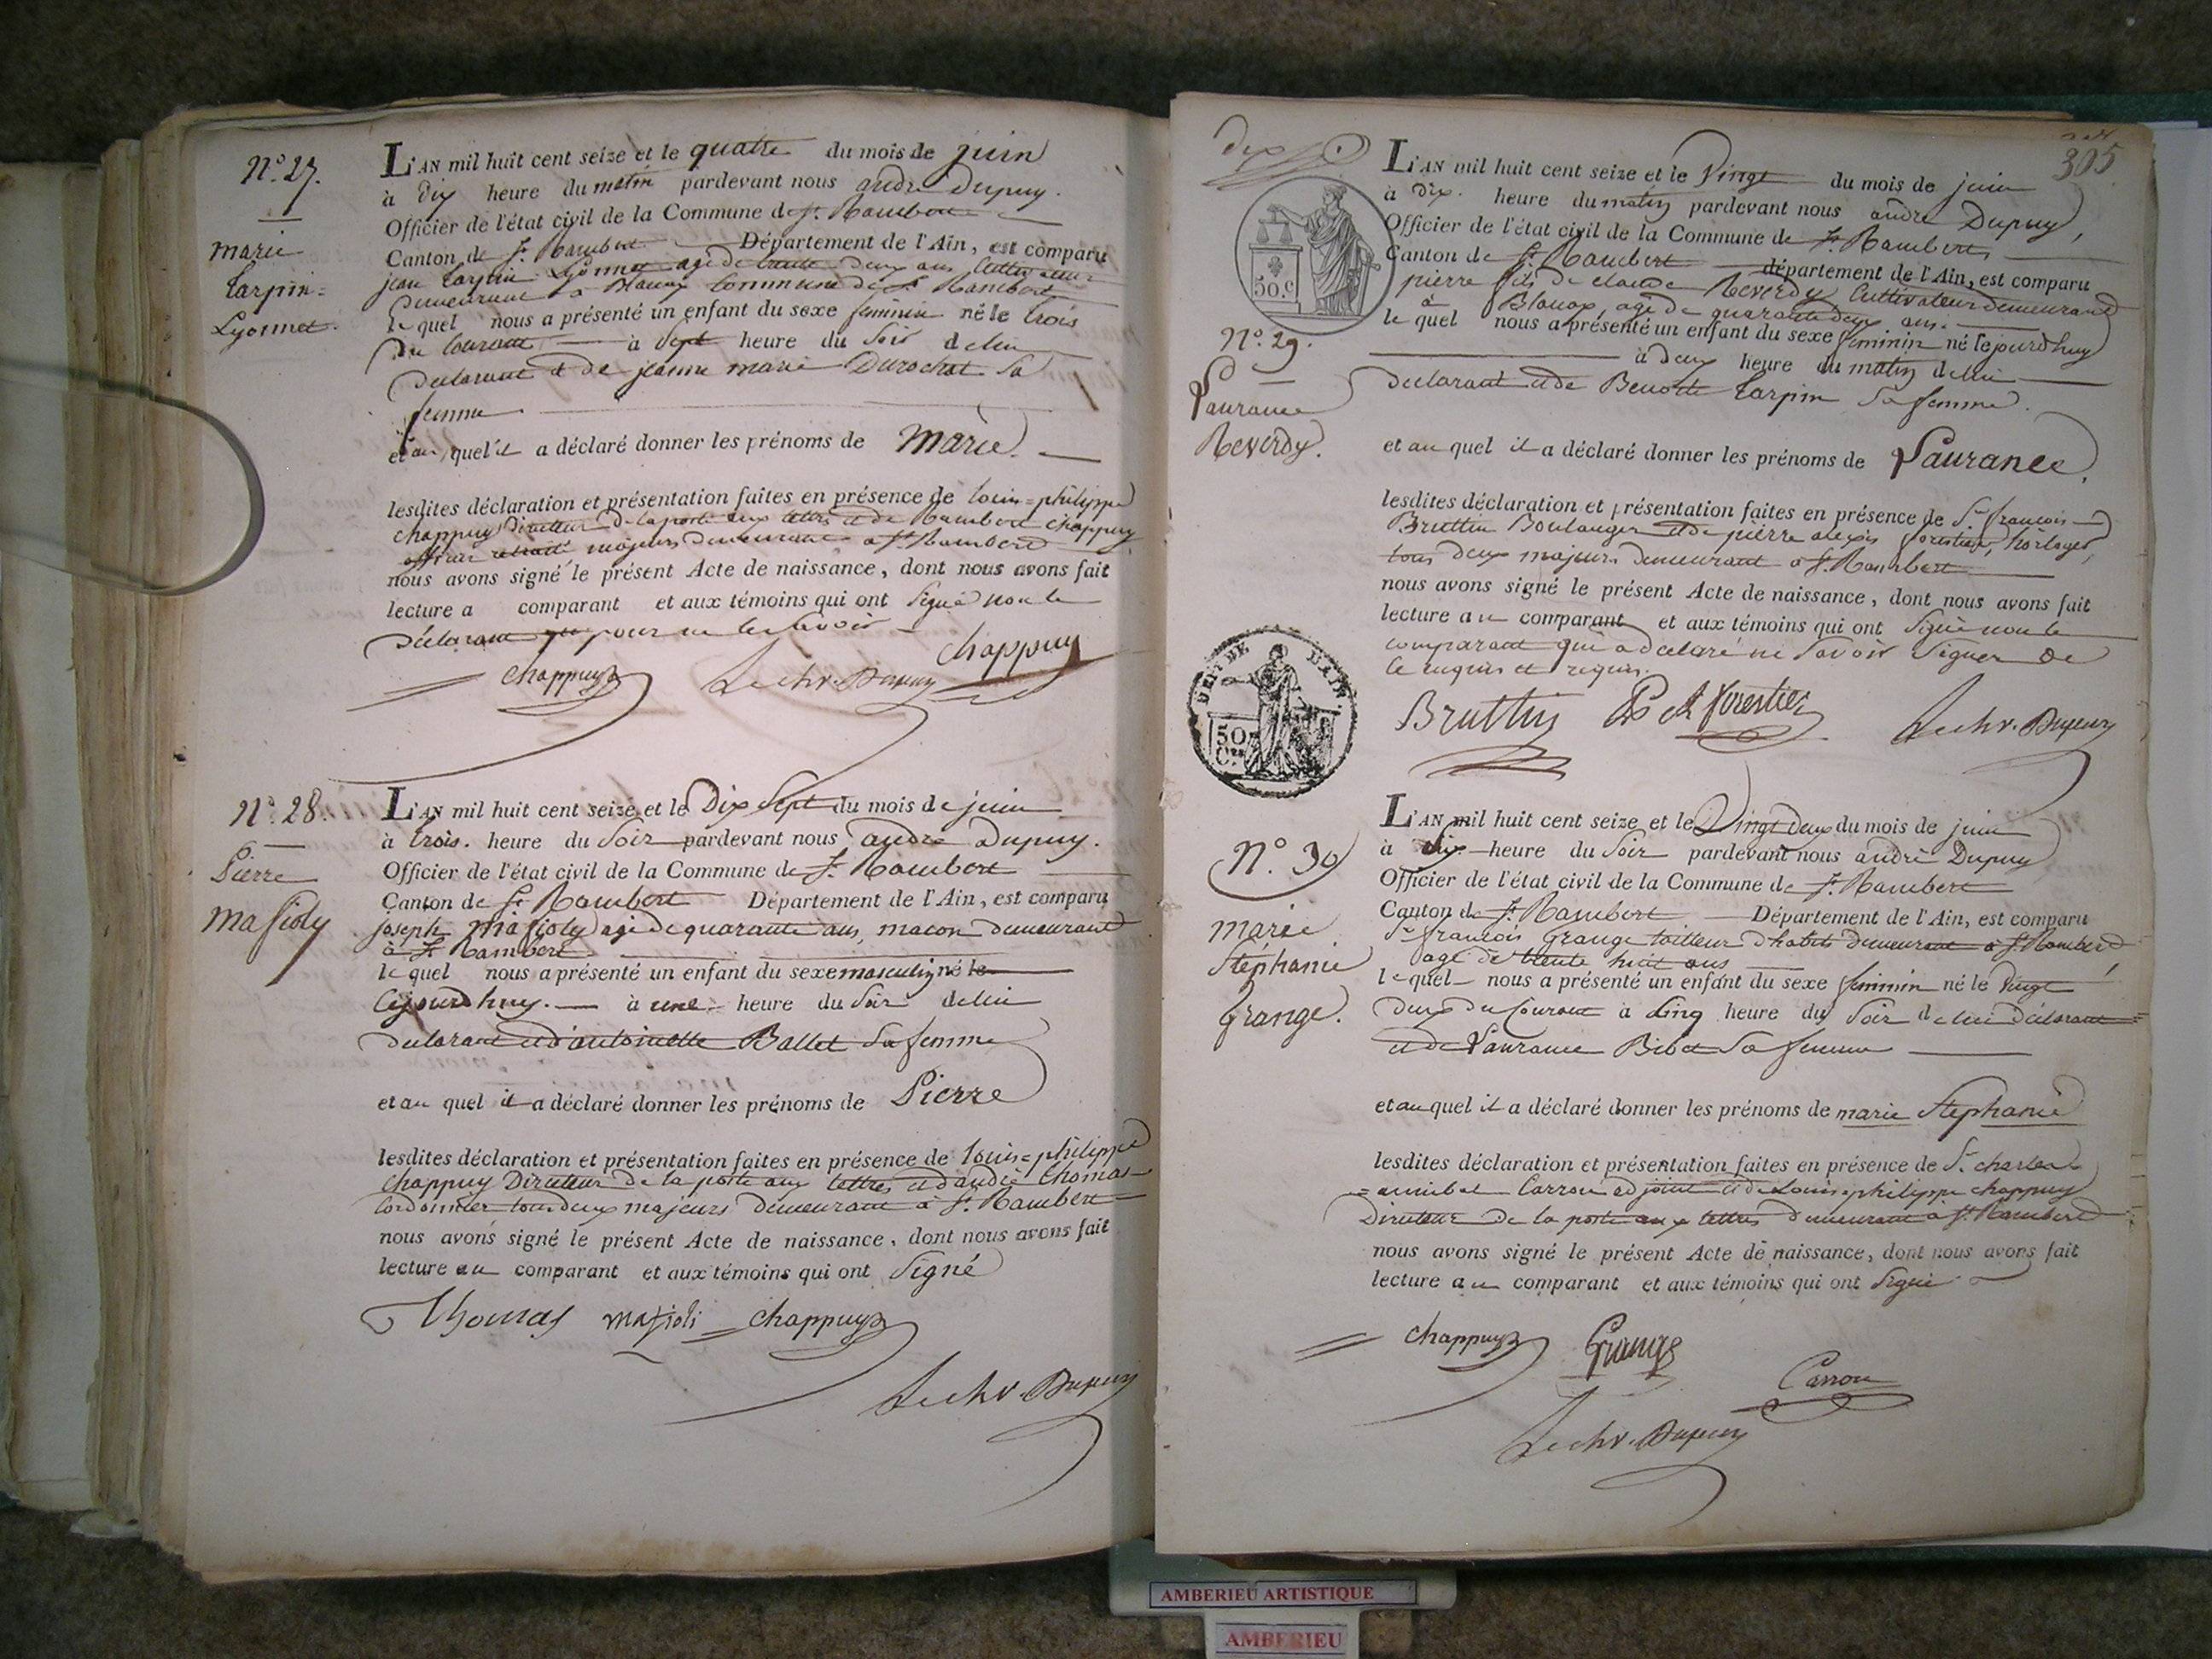 N.° 27.
marie
tarpin=
Lyonnet.
L'AN mil huit cent seize et le quatre du mois de juin
à dix heure du matin pardevant nous andré Dupuy.
Officier de l'état civil de la Commune de St. Rambert
Canton de St. Rambert Département de l'Ain, est comparu
jean tarpin Lyonnet agé de trente deux ans Cultivateur
Demeurant à Blanaz Commune de St. Rambert
le quel nous a présenté un enfant du sexe feminin né le trois
du Courant à Sept heure du Soir de lui
declarant et de jeanne marie Durochat Sa
femme
et au quel il a déclaré donner les prénoms de marie.
lesdites déclaration et présentation faites en présence de louis=philippe
chappuy Directeur de la poste aux lettres et de Rambert chappuy
officier retraité majeurs demeurant à St. Rambert
nous avons signé le présent Acte de naissance, dont nous avons fait
lecture a comparant et aux témoins qui ont Signé non le
déclarant pour ne le Savoir
chappuy
chappuyz Le chr. Dupuy
N.° 28.
Pierre
masioly
L'AN mil huit cent seize et le Dix Sept du mois de juin
à trois. heure du Soir pardevant nous andré Dupuy.
Officier de l'état civil de la Commune de St. Rambert
Canton de St. Rambert Département de l'Ain, est comparu
joseph masioly agé de quarante ans, macon demeurant
à St. Rambert
le quel nous a présenté un enfant du sexe masculin né le
Cejourdhuy. à une heure du Soir de lui
declarant et d'antoinette Ballet Sa femme
et au quel il a déclaré donner les prénoms de Pierre
lesdites déclaration et présentation faites en présence de louis=philippe
chappuy Directeur de la poste aux lettres et d'andré thomas
Cordonnier tous deux majeurs demeurant à St. Rambert
nous avons signé le présent Acte de naissance, dont nous avons fait
lecture au comparant et aux témoins qui ont Signé
Thomas masioli chappuyz
Le chr. Dupuy
dix
305
50.c
N.° 29.
Laurance
Reverdy.
L'AN mil huit cent seize et le Vingt du mois de juin
à dix. heure du matin pardevant nous andré Dupuy,
Officier de l'état civil de la Commune de St. Rambert
Canton de St. Rambert département de l'Ain, est comparu
pierre fils de claude Reverdy, Cultivateur demeurant
à Blanaz, agé de quarante deux ans.
le quel nous a présenté un enfant du sexe feminin né Cejourdhuy
à deux heure du matin de lui
declarant et de Benoite tarpin Sa femme.
et au quel il a déclaré donner les prénoms de Laurance.
lesdites déclaration et présentation faites en présence de Sr. françois
Bruttin Boulanger et de pierre alexis forestier, horloger,
tous deux majeurs demeurant à St. Rambert
nous avons signé le présent Acte de naissance, dont nous avons fait
lecture au comparant et aux témoins qui ont Signé non le
comparant qui a déclaré ne Savoir Signer de
ce enquis et requis.
DEP. DE L'AIN.
50
Bruttin forestier Le chr. Dupuy
N.° 30
marie
Stéphanie
Grange.
L'AN mil huit cent seize et le Vingt deux du mois de juin
à Six. heure du Soir pardevant nous andré Dupuy
Officier de l'état civil de la Commune de St. Rambert
Canton de St. Rambert Département de l'Ain, est comparu
Sr. françois Grange tailleur d'habits demeurant à St. Rambert
agé de trente huit ans
le quel nous a présenté un enfant du sexe feminin né le Vingt
deux du Courant à Cinq heure du Soir de lui déclarant
et de Laurance Bibet Sa femme
et au quel il a déclaré donner les prénoms de marie Stephanie
lesdites déclaration et présentation faites en présence de Sr. charles
=annibal Carron adjoint et de Louis=philippe chappuy
Directeur de la poste aux lettres demeurant à St. Rambert
nous avons signé le présent Acte de naissance, dont nous avons fait
lecture au comparant et aux témoins qui ont Signé
chappuyz Grange
Carron
Le chr. Dupuy
AMBERIEU ARTISTIQUE
AMBERIEU